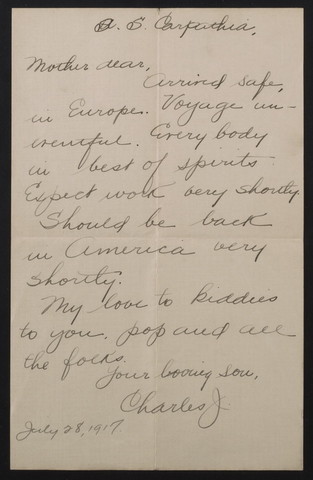 R. S. Carpathia,
Mother dear,
Arrived safe,
in Europe. Voyage un-
eventful. Every body
in best of spirits
Expect work very shortly
Should be back
in America very
shortly.
My love to kiddies
to you, pop and all
the folks.
Your loving son,
Charles J
July 28, 1917.